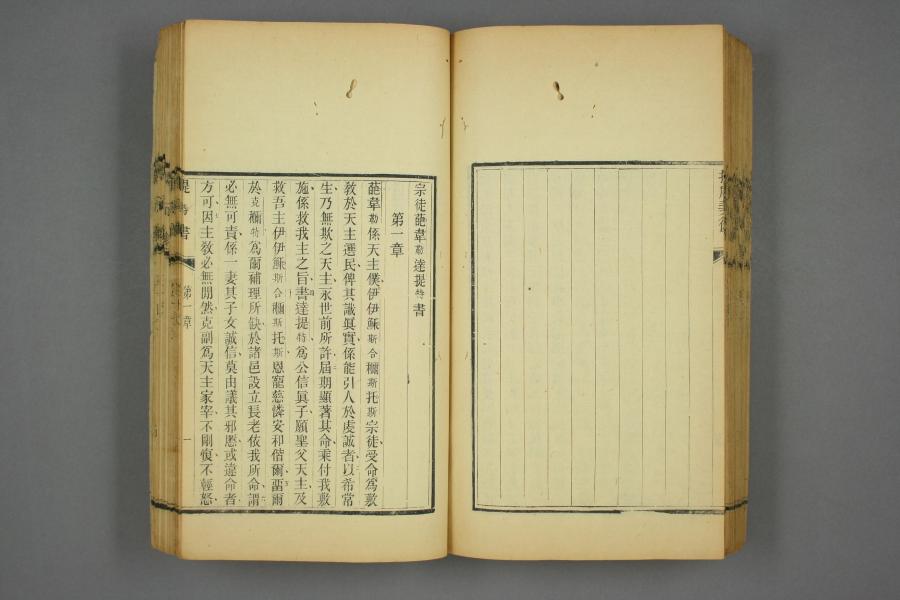 宗徒葩韋勒達提特書
第一章
葩韋勒係天主僕伊伊穌斯合櫃斯托斯宗徒受命爲敎
敎於天主選民俾其識眞實係能引人於虔誠者以希常
生乃無欺之天主永世前所許屆期顯著其命乘付我敎
施係救我主之旨書達提特爲公信眞子願聖父天主及
救吾主伊伊穌斯合櫃斯托斯恩寵慈憐安和偕爾畱爾
於克櫃特爲爾補理所缺於諸邑設立長老依我所命謂
必無可責係一妻其子女誠信莫由議其邪慝或違命者
方可因主敎必無閒然克副爲天主家宰不剛愎不輕怒
提特書 第一章 一